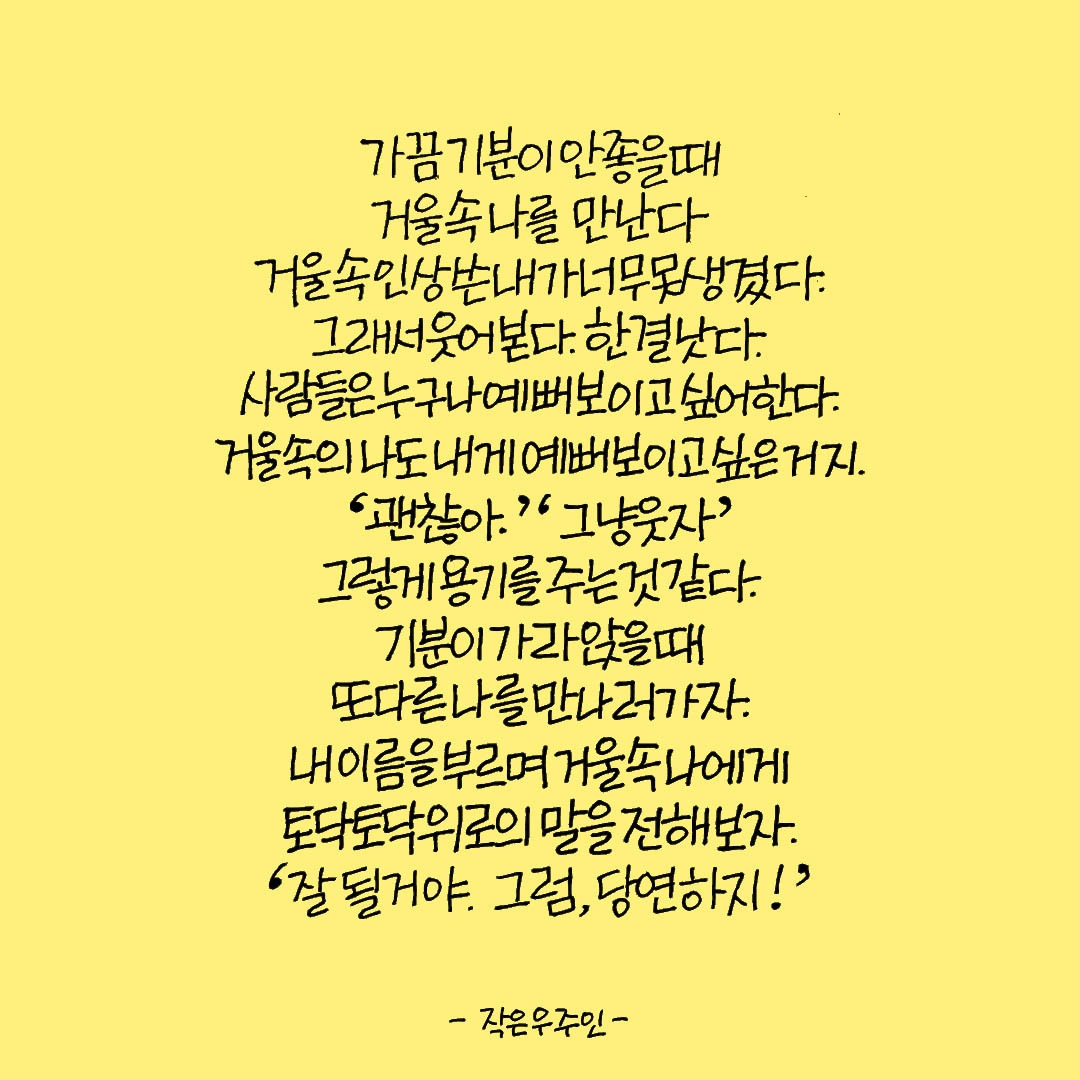 가끔 기분이 안좋을때
거울속 나를 만난다
거울 속 인상쓴 내가 너무 못생겼다.
그래서 웃어본다. 한결 낫다.
사람들은 누구나 예뻐보이고 싶어한다.
거울속의 나도 내게 예뻐보이고 싶은거지.
‘괜찮아.’ ‘그냥 웃자’
그렇게 용기를 주는것 같다.
기분이 가라앉을때
또다른 나를 만나러가자.
내 이름을 부르며 거울속 나에게
토닥토닥 위로의 말을 전해보자.
‘잘 될거야. 그럼, 당연하지!’
- 작은우주인 -